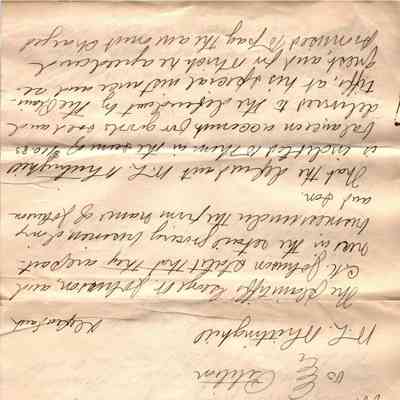 vs Petition
W. L. Whittinghill Defendant
The plaintiffs George W Johnson and
C. H. Johnson state that they are part-
ners in the retail grocery business doing
business under the firm name of Johnson
and Son.
That the defendant W. L. Whittinghill
is indebted to them in the sum of
balance on account for goods sold and
delivered to the defendant by the Plain-
tiffs, at his special instance and re-
quest, and for which he agreed and
promised to pay the amount charged